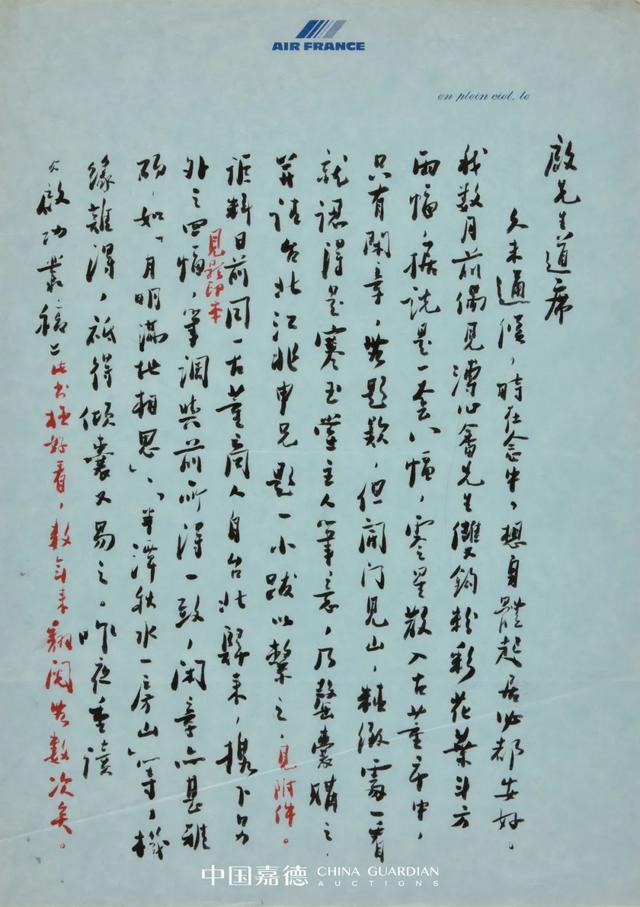 AIR FRANCE
en plein ciel, le
啟先生道席
久未通候，時在念中，想身體起居必都安好。
我數月前偶見溥心畬先生雙鈎粉彩花葉斗方
兩幅，據説是一套八幅，零星散入古董市中，
只有閑章，無題款，但開門見山，細微處一看
就認得是寒玉堂主人筆意，乃罄囊購之，
并請台北江兆申兄題一小跋以繫之，見附件。
詎料日前同一古董商人自台北歸來，攜下另
外之四幅，見影印本筆調與前所得一致，閑章亦甚雅
碩，如「月明滿地相思」、「半潭秋水一房山」等，機
緣難得，祇得傾囊又易之。昨夜重讀
《啟功叢稿》此書極好看，數年來翻閱無數次矣。
中国嘉德 CHINA GUARDIAN
AUCTIONS